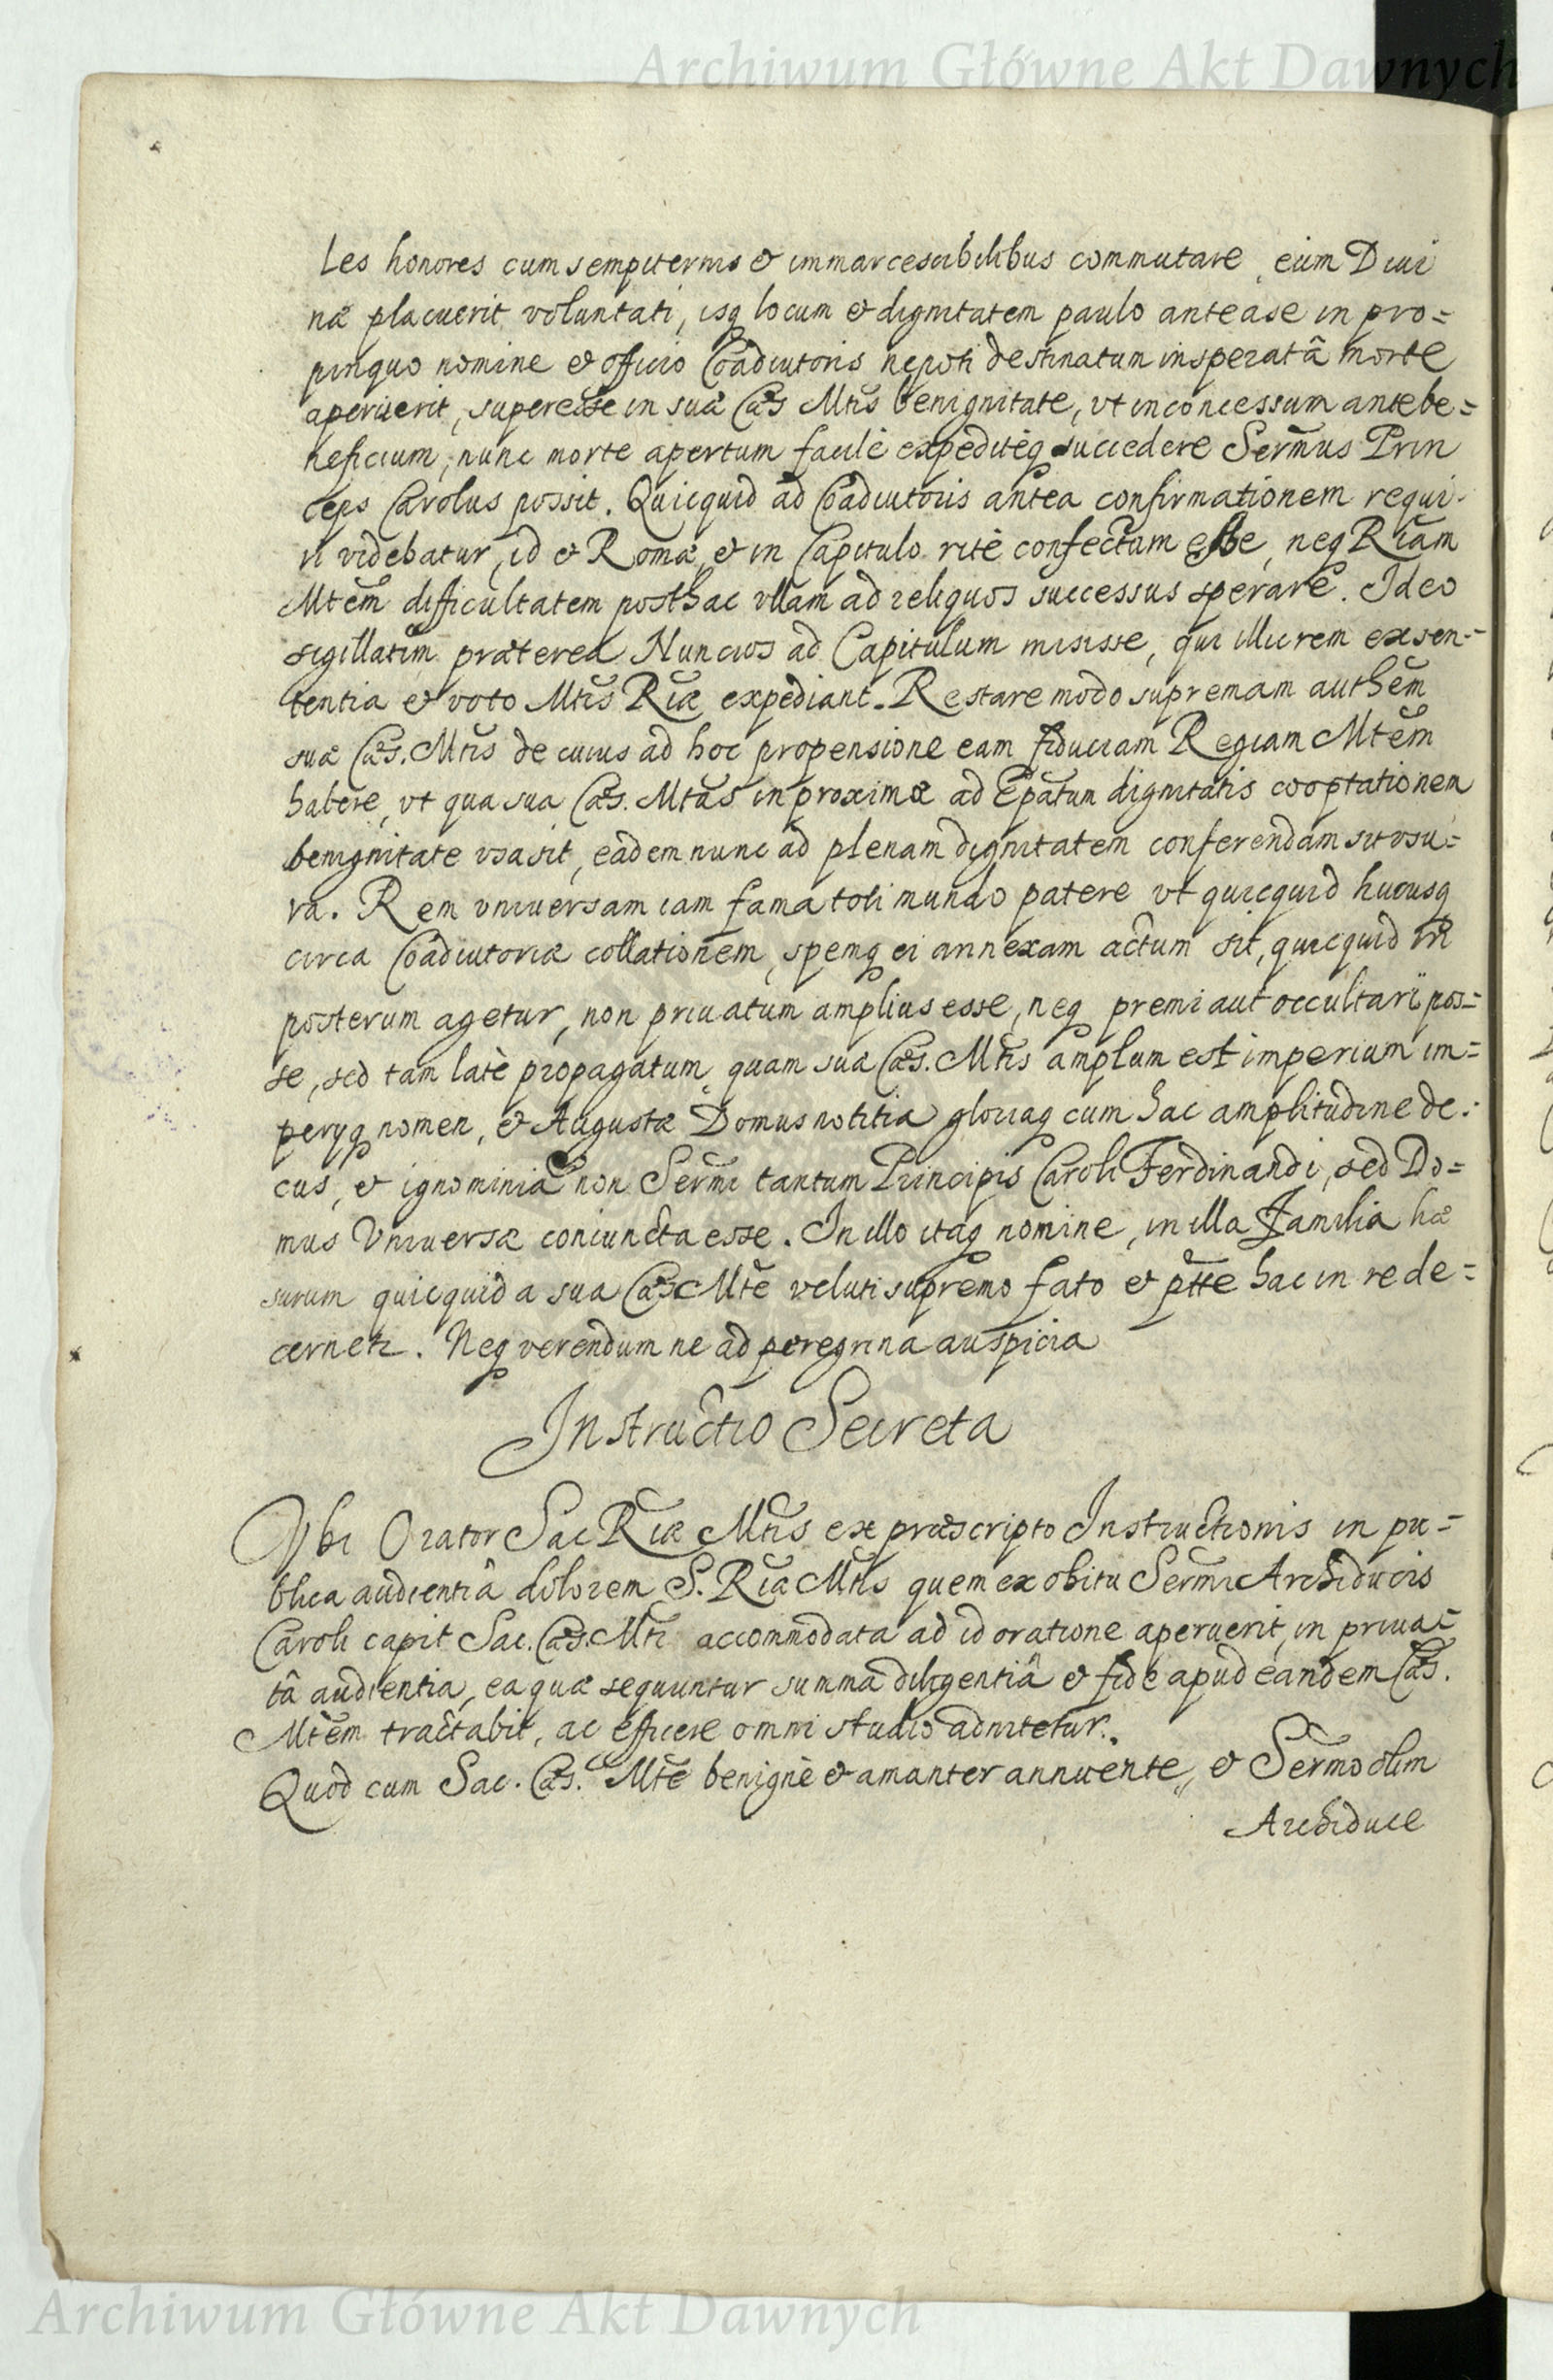 Archiwum Główne Akt Dawnych
les honores cum sempiternis & immarcescibilibus commutare, eum Diui
næ placuerit voluntati, isq locum & dignitatem paulo antea se in pro=
pinquo nomine & officio Coadiutoris nepoti destinatum insperatâ morte
aperuerit, superesse in suæ Cæs Mtis benignitate, vt in concessum ante be=
neficium, nunc morte apertum facilè expeditèq succedere Sermus Prin
ceps Carolus possit. Quicquid ad Coadiutoris antea confirmationem requi-
ri videbatur, id & Romæ, & in Capitulo ritè confectum esse, neq Riam
Mtem difficultatem posthac vllam ad reliquos successus sperare. Ideo
sigillatim præterea Nuncios ad Capitulum misisse, qui illic rem ex sen-
tentia & voto Mtis Riæ expediant. Restare modo supremam authem
suæ Cæs. Mtis de cuius ad hoc propensione eam fiduciam Regiam Mtem
habere, vt qua sua Cæs. Mtas in proximæ ad Epatum dignitatis cooptationem
benignitate vsa sit, eadem nunc ad plenam dignitatem conferendam sit vsu=
ra. Rem vniuersam iam fama toti mundo patere vt quicquid hucusq
circa Coadiutoriæ collationem, spemq ei annexam actum sit, quicquid in
posterum agetur, non priuatum amplius esse, neq premi aut occultari pos=
se, sed tam latè propagatum, quam suæ Cæs. Mtis amplum est imperium im=
perijq nomen, & Augustæ Domus notitia gloriaq cum hac amplitudine de:
cus, & ignominia non Sermi tantum Principis Caroli Ferdinandi, sed Do=
mus Vniuersæ coniuncta esse. In illo itaq nomine, in illa Familia hæ
surum quicquid a sua Cæs Mte veluti supremo fato & ptte hac in re de=
cernetr. Neq verendum ne ad peregrina auspicia
Instructio Secreta
Vbi Orator Sac Riæ Mtis ex præscripto Instructionis in pu=
blica audientiâ dolorem S. Riæ Mtis quem ex obitu Sermi Archiducis
Caroli capit Sac. Cæs. Mti accommodata ad id oratione aperuerit, in priua=
tâ audientia, ea quæ sequuntur summa diligentiâ & fide apud eandem Cæs.
Mtem tractabit, ac efficere omni studio adnitetur.
Quod cum Sac. Cæs. Mte benignè & amanter annuente, & Sermo olim
Archiduce
Archiwum Główne Akt Dawnych